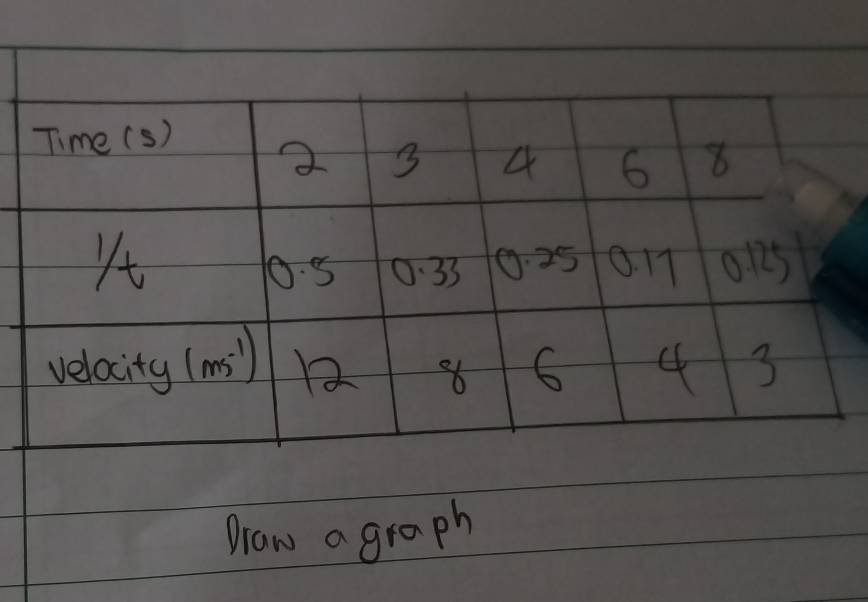 Time (s) 2 3 4 6 8
1/t 0.5 0.33 0.25 0.17 0.125
velocity (ms⁻¹) 12 8 6 4 3
Draw a graph